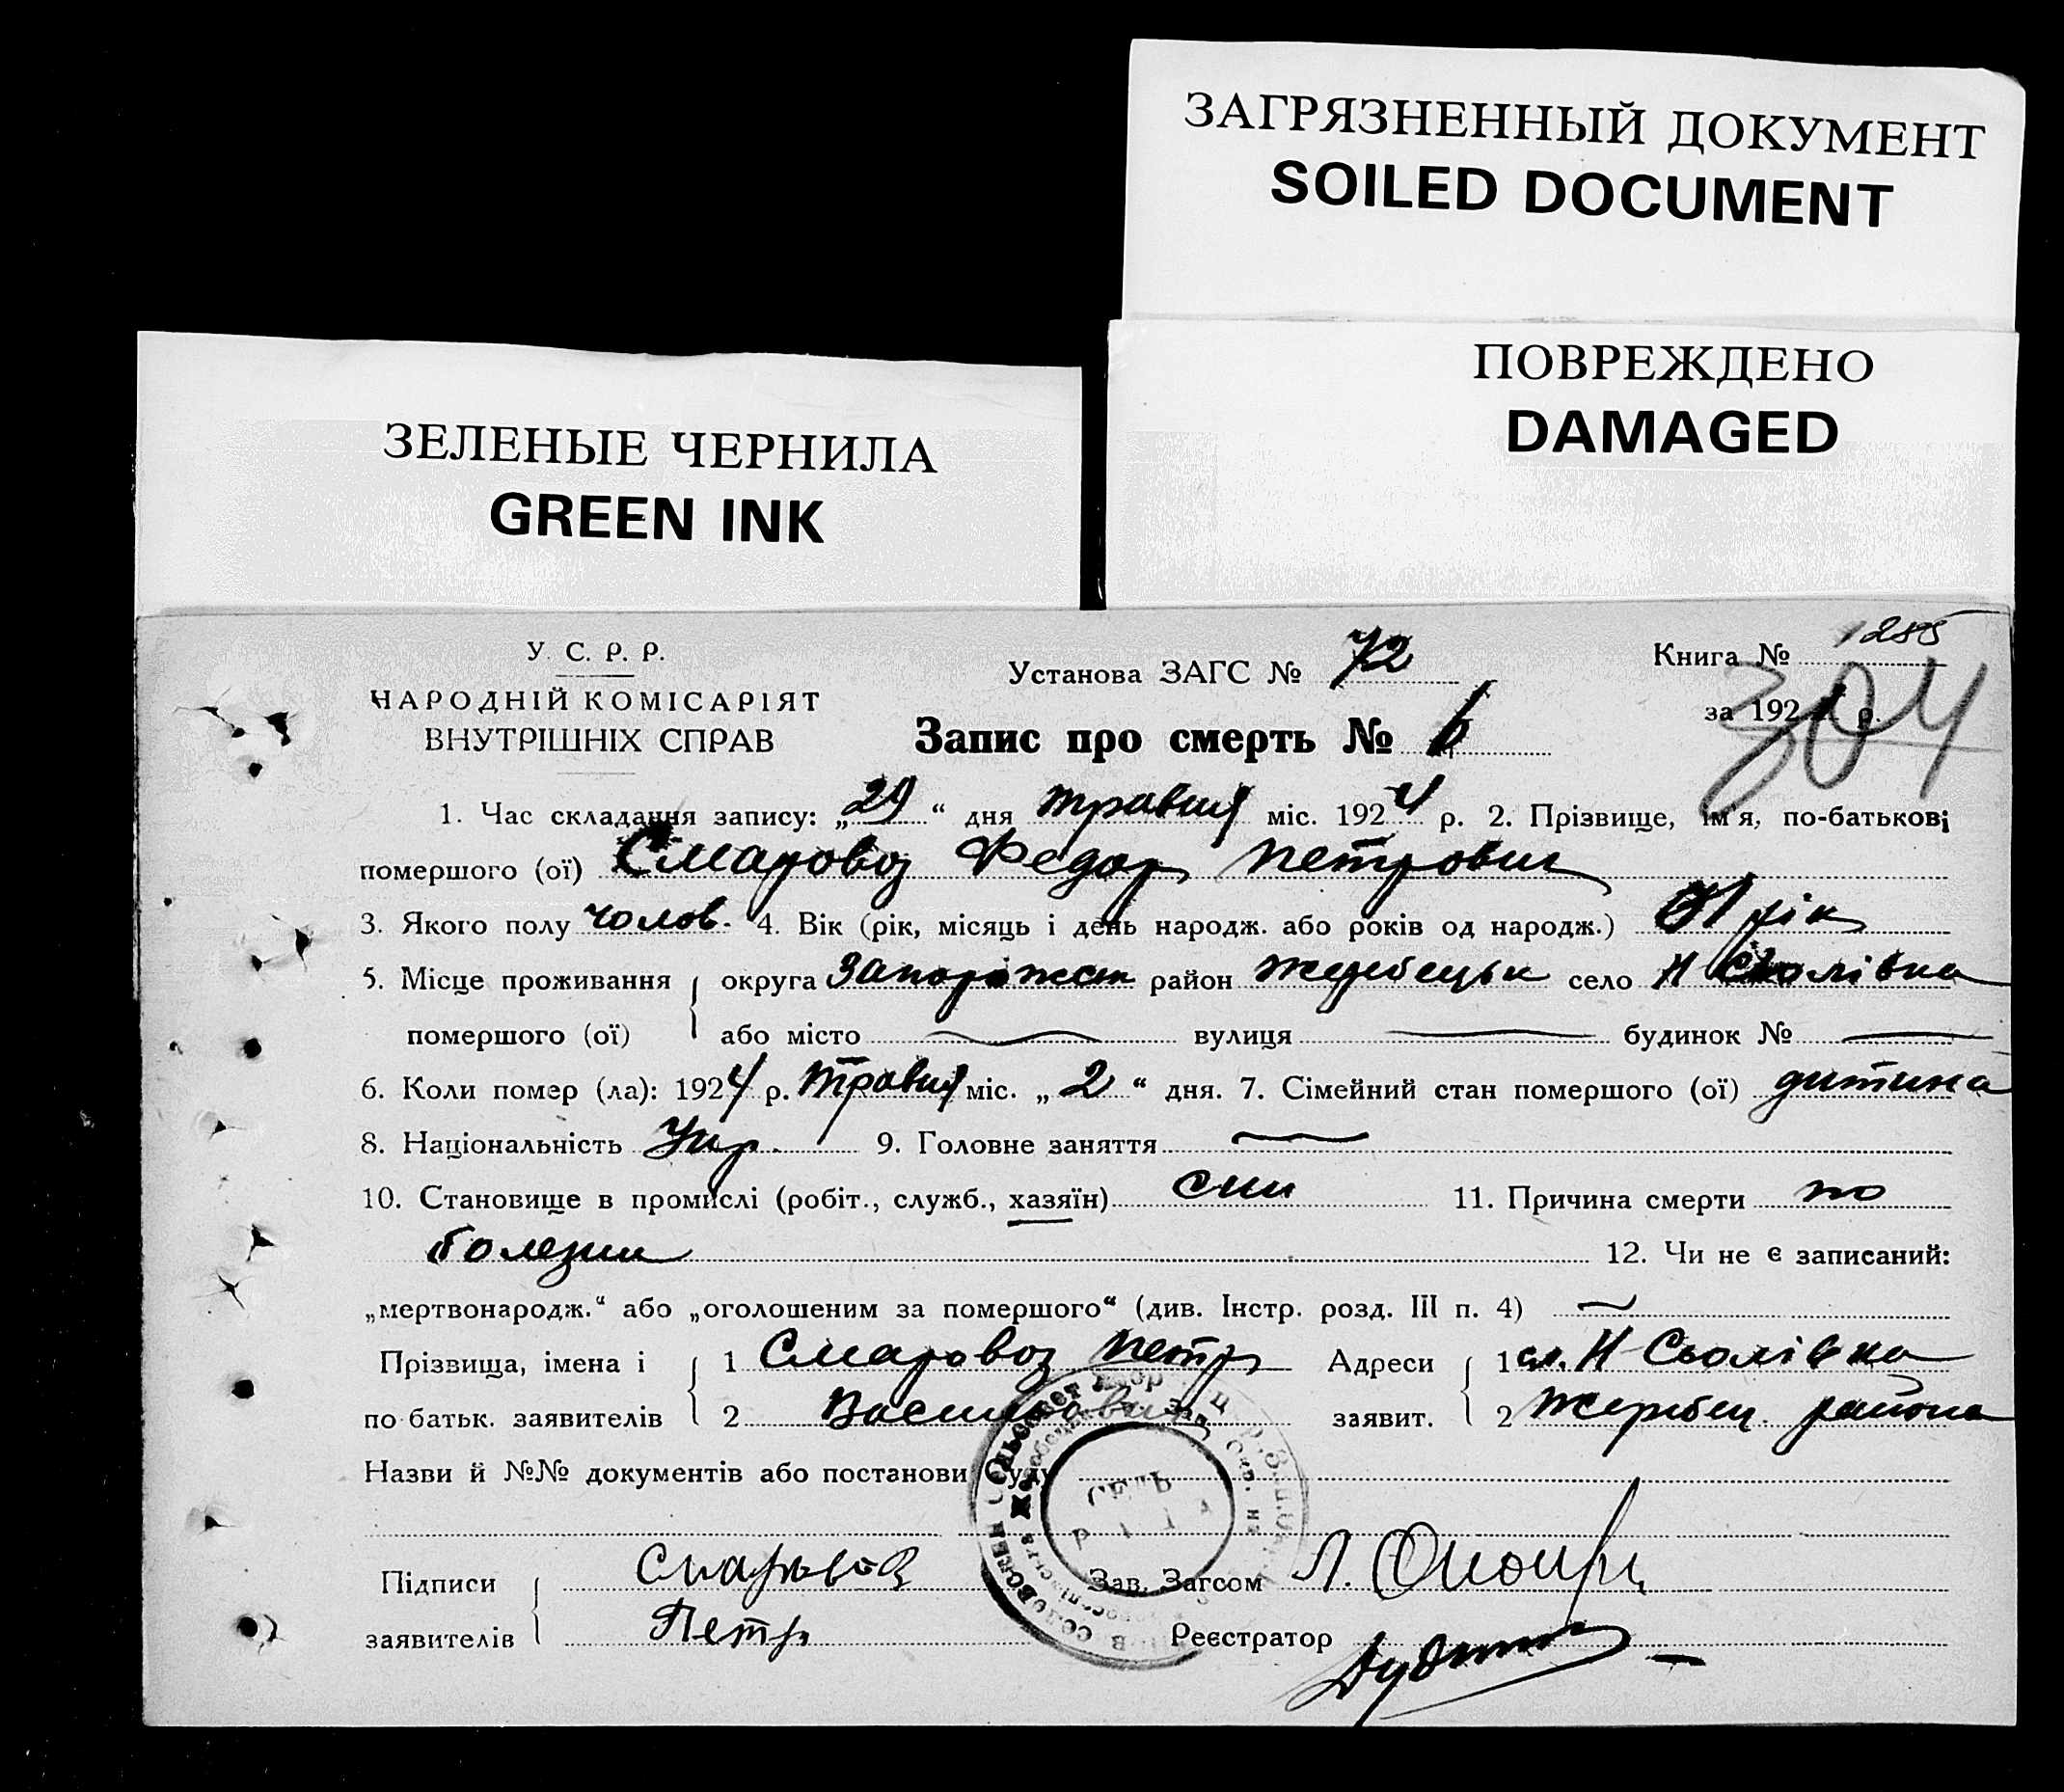 ЗАГРЯЗНЕННЫЙ ДОКУМЕНТ
SOILED DOCUMENT
ПОВРЕЖДЕНО
DAMAGED
ЗЕЛЕНЫЕ ЧЕРНИЛА
GREEN INK
У. С. Р. Р.
НАРОДНІЙ КОМІСАРІЯТ
ВНУТРІШНІХ СПРАВ
Установа ЗАГС № 72
Запис про смерть № 6
Книга № 1285
за 192 р.
304
1. Час складання запису: „29“ дня травня міс. 1924 р. 2. Прізвище, ім'я, по-батькові
помершого (ої) Смаровоз Федор Петрович
3. Якого полу чолов. 4. Вік (рік, місяць і день народж. або років од народж.) 1 рік
5. Місце проживання { округа Запоріжськ район Жеребецьк село Н Сьолівка
помершого (ої) або місто вулиця будинок №
6. Коли помер (ла): 1924 р. травня міс. „2“ дня. 7. Сімейний стан помершого (ої) дитина
8. Національність Укр. 9. Головне заняття
10. Становище в промислі (робіт., служб., хазяїн) син 11. Причина смерти по
болезни 12. Чи не є записаний:
„мертвонародж.“ або „оголошеним за помершого“ (див. Інстр. розд. III п. 4)
Прізвища, імена і { 1 Смаровоз Петр Адреси { 1 сл. Н-Сьолівка
по батьк. заявителів 2 Василович заявит. 2 Жеребец. района
Назви й №№ документів або постанови суду
Підписи { Смаровоз Зав. Загсом Л.
заявителів Петр Реєстратор